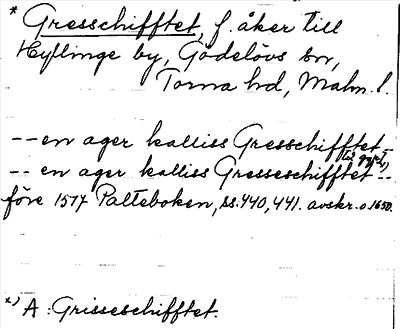 * Gresschifftet, f. åker till
Hyllinge by, Gödelövs sn,
Torna hd, Malm. l.
-- en ager kalliss Gresschifftet --
-- en ager kalliss Gresseschifftet --
före 1517 Palteboken, ss. 440, 441. avskr. o. 1650.
x) A: Grisseschifftet.